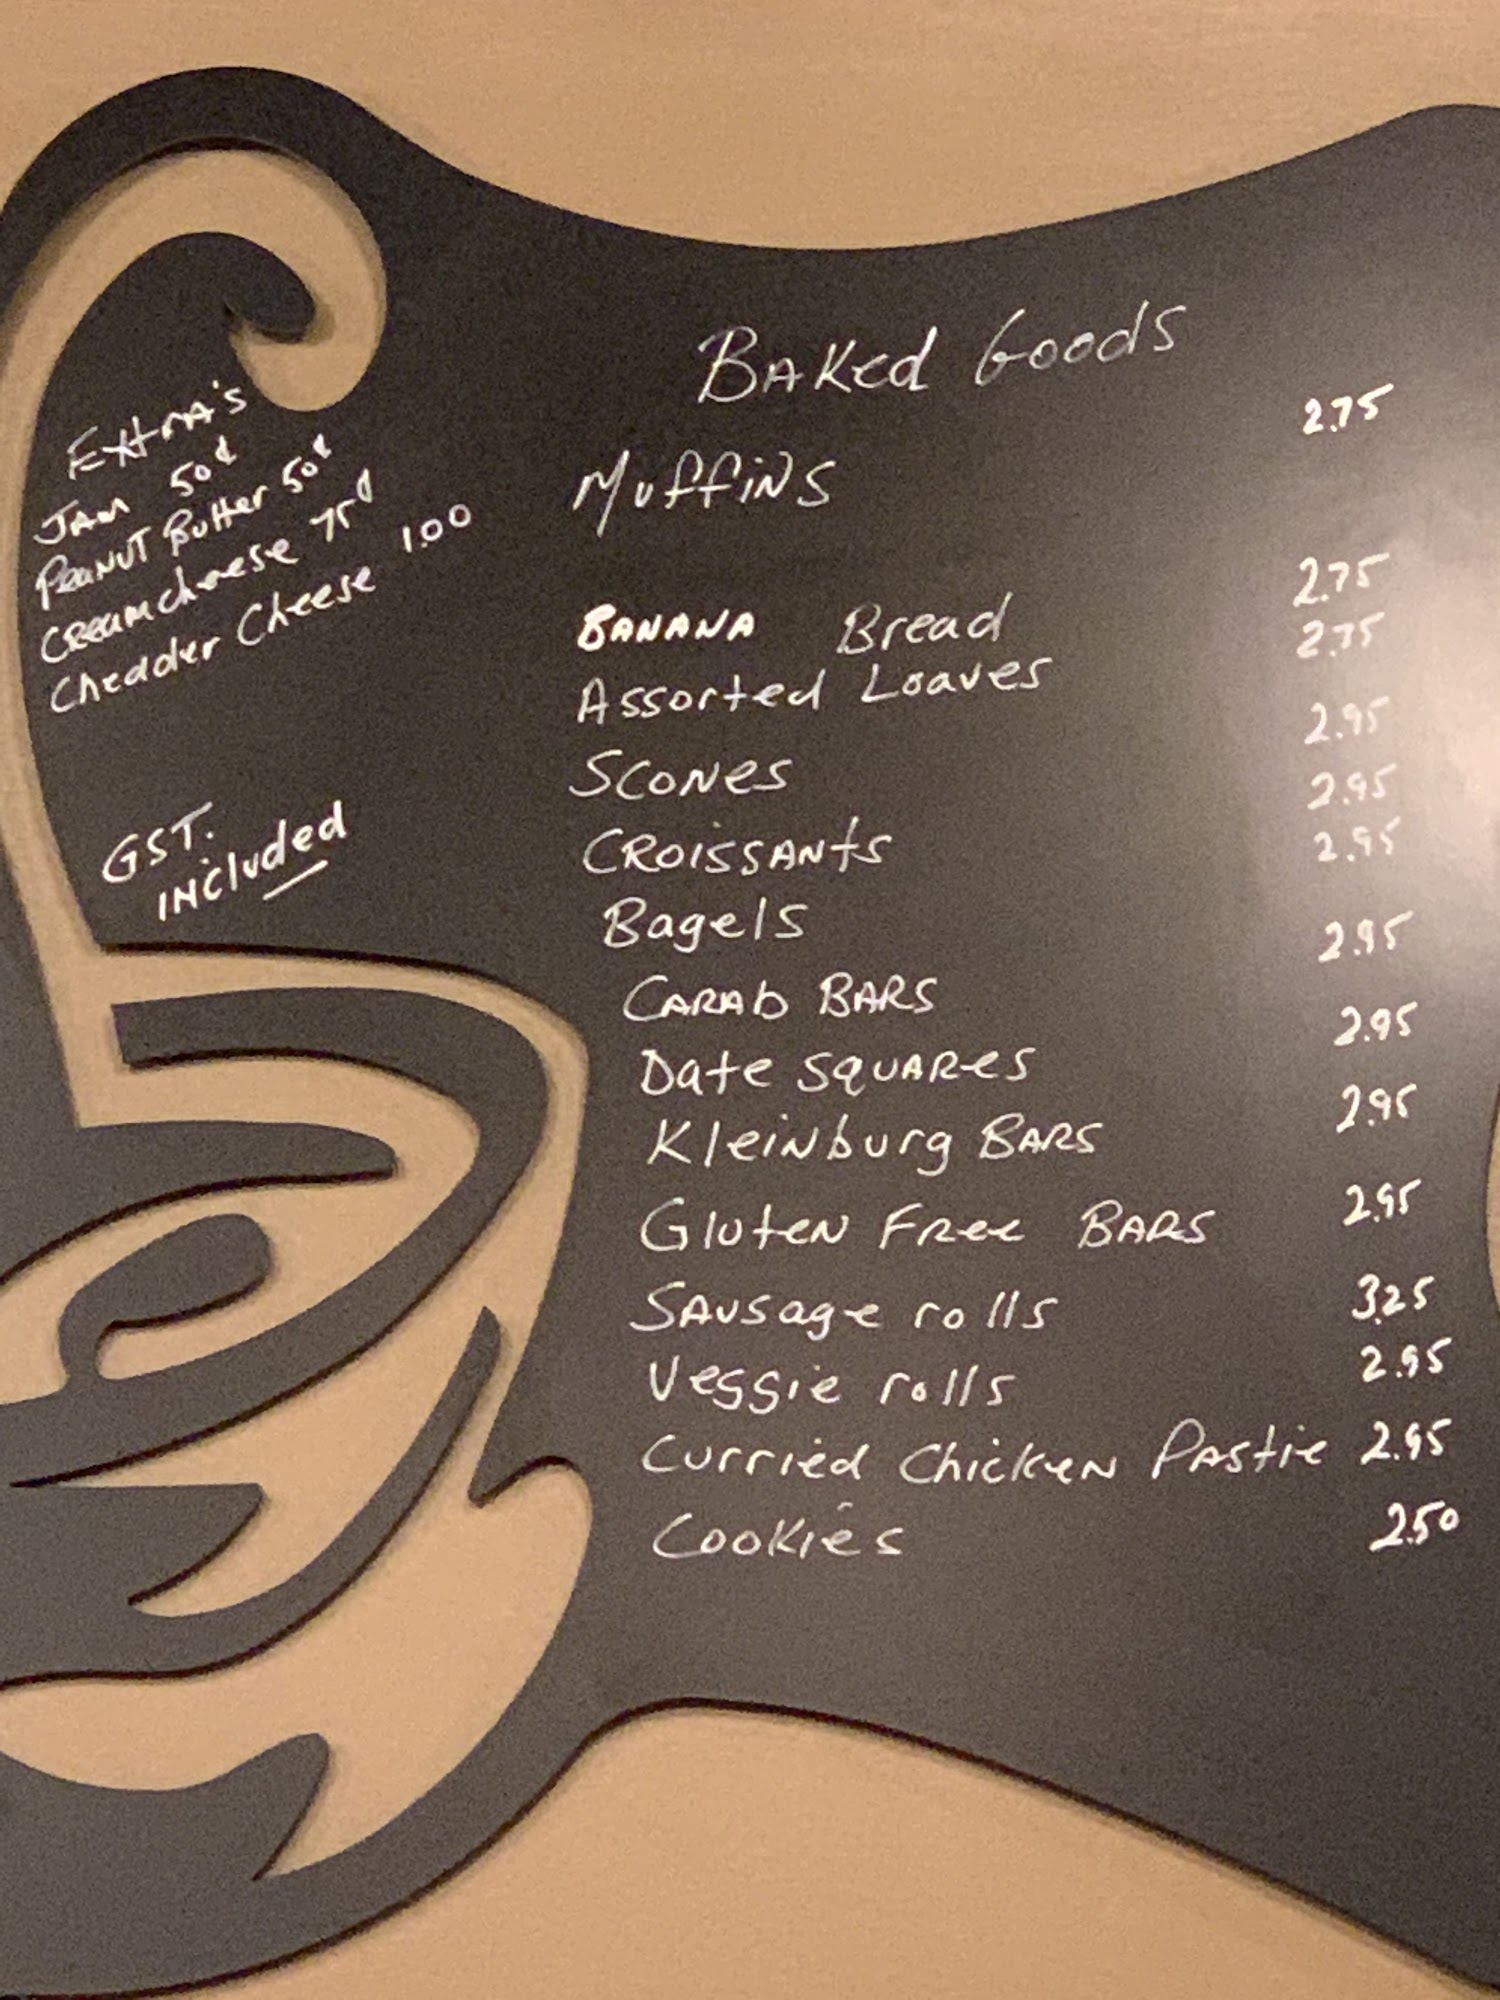 Extra's
Jam 50¢
Peanut Butter 50¢
Creamcheese 75¢
Chedder Cheese 1.00
GST.
included
Baked Goods
Muffins 2.75
Banana Bread 2.75
Assorted Loaves 2.75
Scones 2.95
Croissants 2.95
Bagels 2.95
Carab Bars 2.95
Date squares 2.95
Kleinburg Bars 2.95
Gluten Free Bars 2.95
Sausage rolls 3.25
Veggie rolls 2.95
Curried Chicken Pastie 2.95
Cookies 2.50